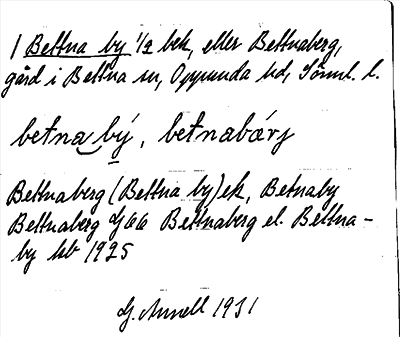 1 Bettna by 1/2 bek, eller Bettnaberg,
gård i Bettna sn, Oppunda hd, Sörml. l.
betna bý, betnabærj
Bettnaberg (Bettna by) ek, Betnaby
Bettnaberg G66 Bettnaberg el. Bettna-
by kb 1925
G. Annell 1931